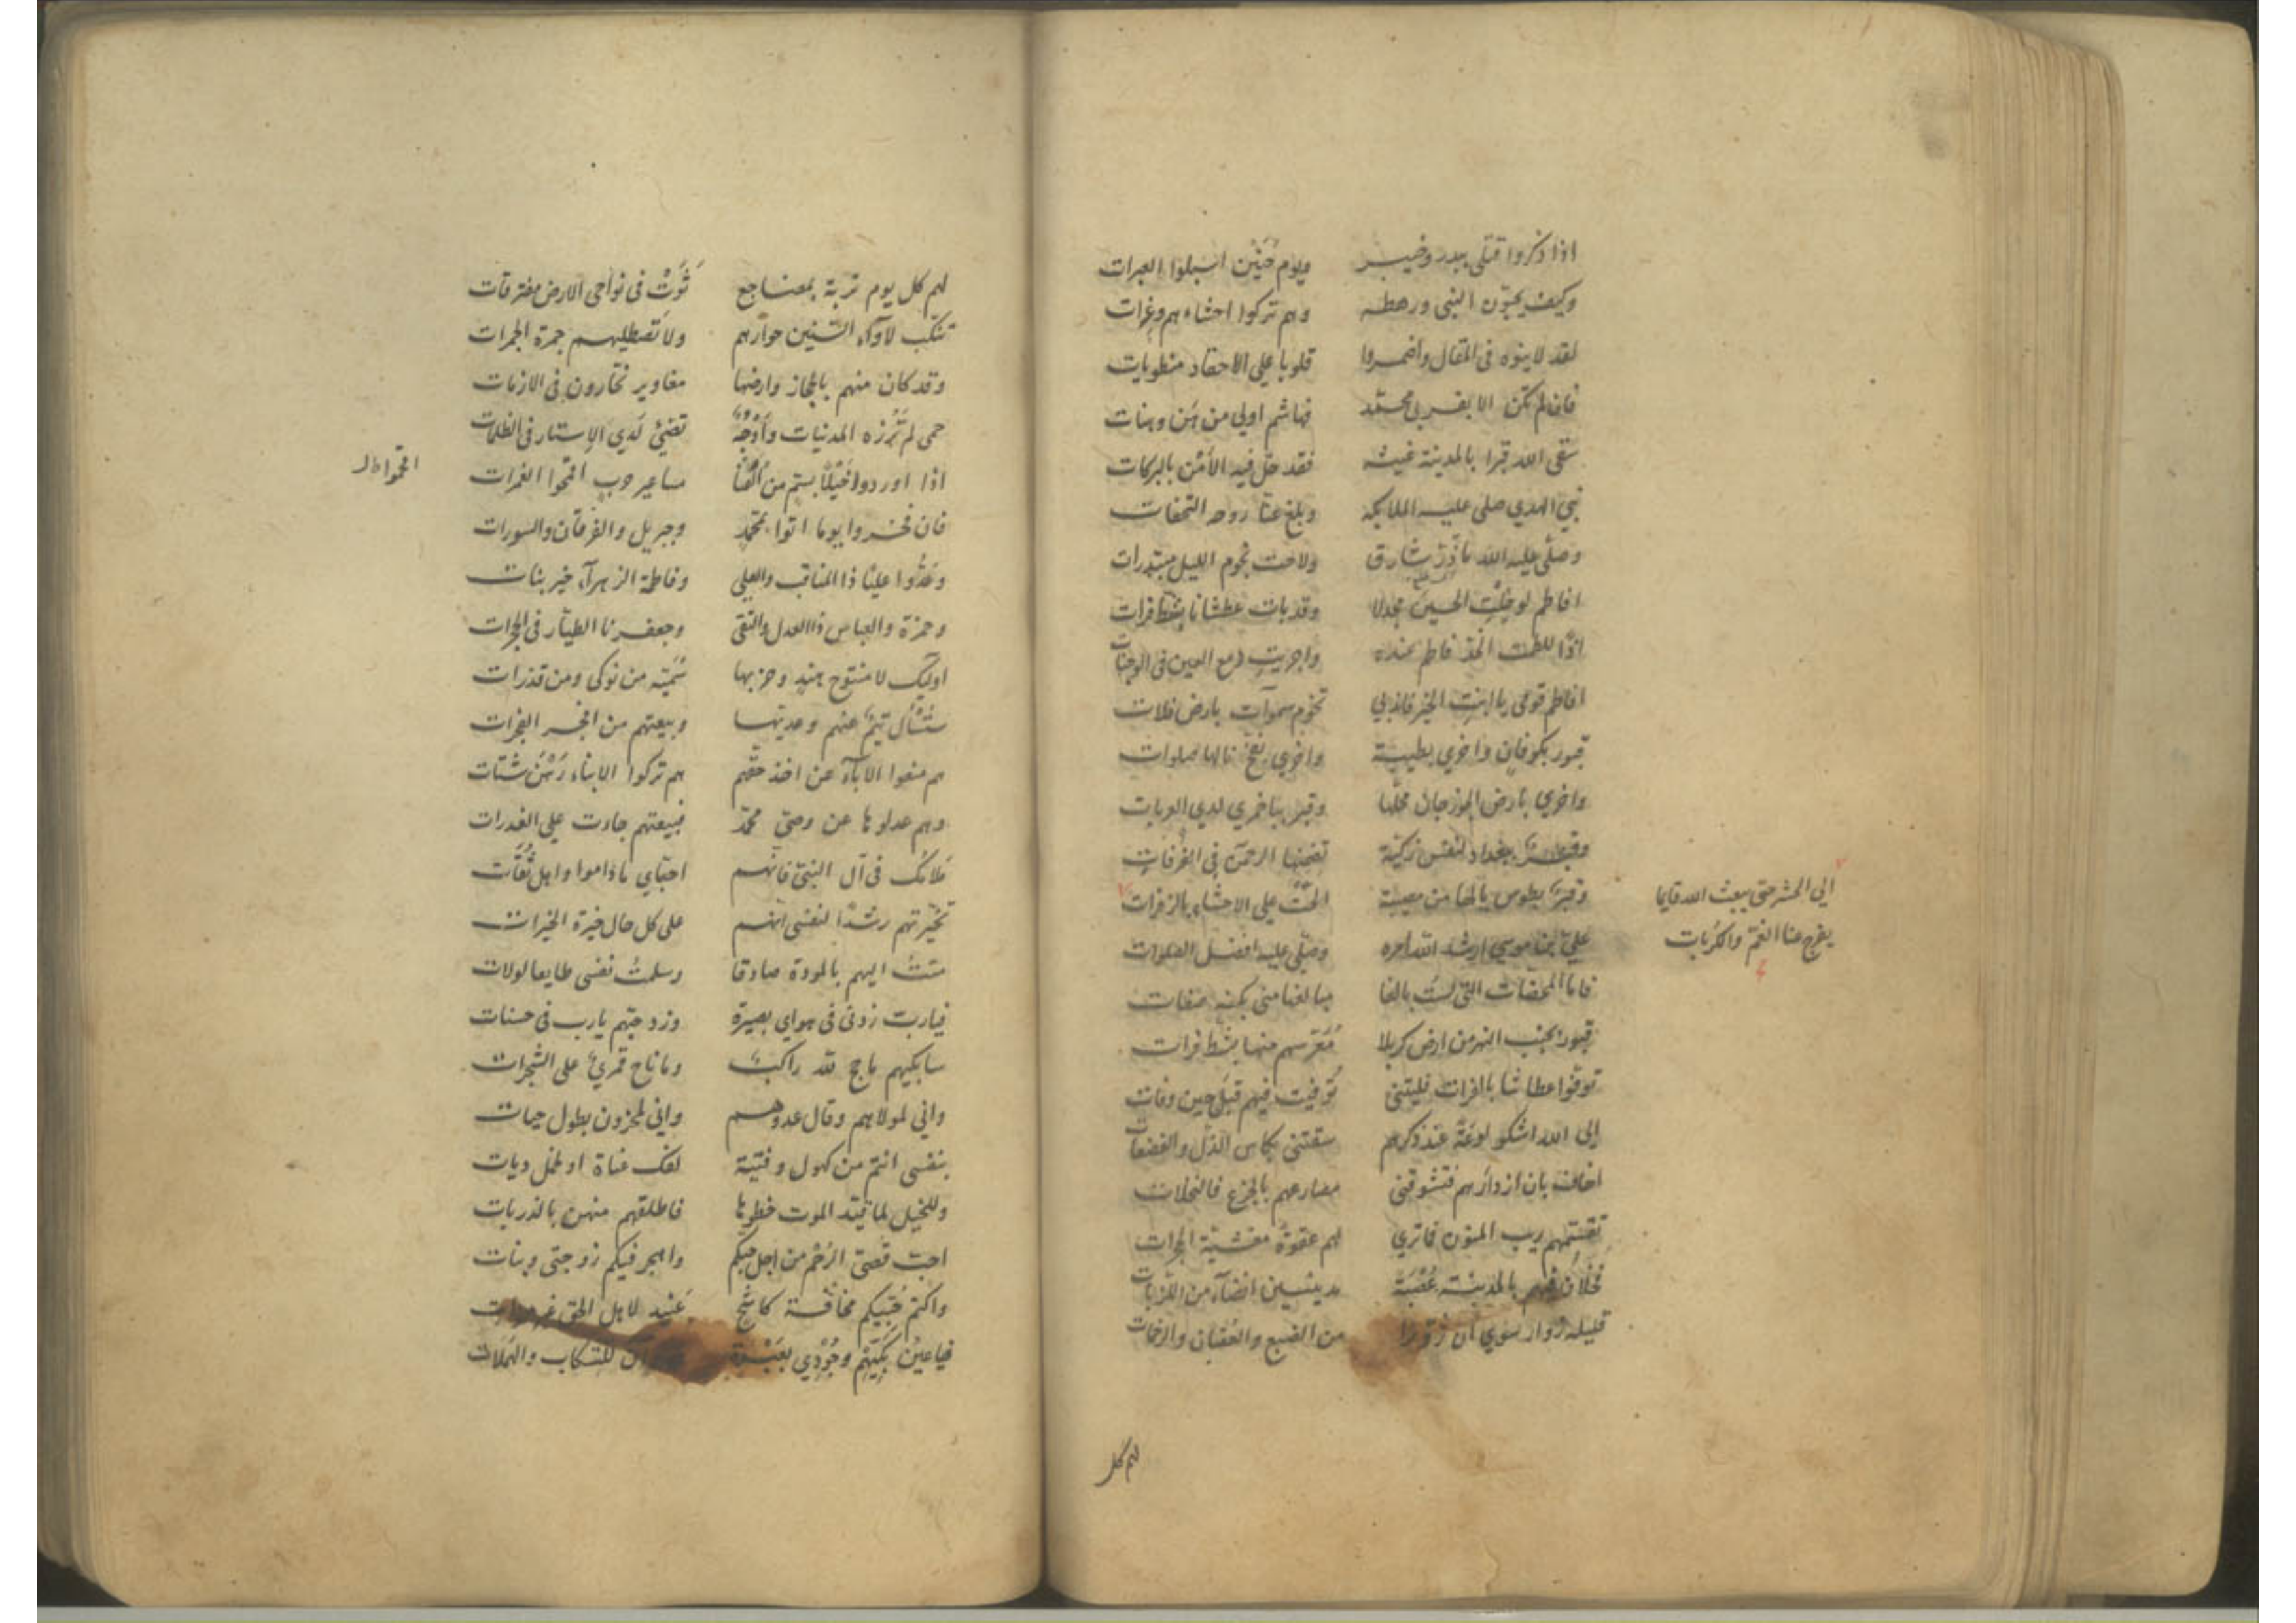 اذا ذكروا قتلى ببدر وخيبر ويوم حُنَيْن اسبلوا العبرات
وكيف يحبّون النبى ورهطه وهم تركوا احشاءهم وغرات
لقد لاينوه فى المقال واضمروا قلوبا على الاحقاد منطويات
فان لم تكن الا بقربى محمّد فهاشم اولى من هَن وهنات
سقى الله قبرا بالمدينة غيثه فقد حلّ فيه الأمْن بالبركات
نبىّ الهدي صلى عليه الملايكه وبلغ عنّا روحه التحفات
وصلّى عليه الله ماذَرّ شارق ولاحت نجوم الليل مبتدرات
افاطم لو خِلْتِ الحسين مجدلا وقد مات عطشانا بشط فرات
اذًا للطمت الخدّ فاطم عنده واجريتِ دمع العين فى الوجنات
افاطم قومى يا ابنت الخير فاندبي نجوم سموات بارض فلات
قبور بكوفانٍ واخري بطيبة واخري بفخ نالها صلوات
واخري بارض الجوزجان محلّها وقبر بباخمري لدي العربات
وقبر ببغداد لنفس زكية تضمنها الرحمن فى الغُرفات
وقبر بطوس يا لها من مصيبة الحّتْ على الاحشاء بالزفرات
الى الحشر حتى يبعث الله قايما
يفرج عنا الغمّ والكُربات
علىّ بن موسى ارشد الله امره وصلّى عليه افضل الصلوات
فاما الممضات التى لستُ بالغا مبالغها منى بكنه صفات
قبور بجنب النهر من ارض كربلا مُعَرَّسهم منها بشط فرات
توفوا عطاشا بالفرات فليتنى تُوفيت فيهم قبل حين وفات
إلى الله اشكو لوعَةً عند ذكرهم سقتنى بكاس الذل والفضعات
اخاف بان ازدارهم فتشوقنى مصارعهم بالجزع فالنخلات
تقسّمهم ريب المنون فماتري لهم عقوةً مغشيّة الحجرات
خلا ان منهم بالمدينة عُصْبَة مدينين انضاءً من اللزبات
قليلة زوار سوي ان زوّرا من الضبع والعُقبان والرخمات
لهم كل
لهم كل يوم تربة بمضاجع ثَوَتْ فى نواحى الارض مفترقات
تنكب لأوآء السّنين جوارهم ولا تصطليهم جمرة الجمرات
وقد كان منهم بالحجاز وارضها مغاوير نحّارون فى الازمات
حمى لم تَزُرْه المدنيات وأوْجُهٌ تضئ لَدي الاستار فى الظلمات
اذا اوردوا خَيْلًا بسم من القنا مساعير حرب اقحموا الغمرات
اقحموا ظ
فان فخروا يوما اتوا بمحمّد وجبريل والفرقان والسورات
وعَدُّوا عليًا ذا المناقب والعلى وفاطمة الزهرآء خير بنات
وحمزة والعباس ذا العدل والتقى وجعفرنا الطيّار فى الحجرات
اوليك لا منتوج هند وحزبها سُميّه من نوكى ومن قذرات
ستُسْأل تيمٌ عنهم وعديّها وبيعتهم من افجر الفجرات
هم منعوا الابآء عن اخذ حقّهم هم تركوا الابناء رَهْن شتات
وهم عدلوها عن وصىّ محمّد فبيعتهم جاءت على الغدرات
مَلامُك فى آل النبىّ فانّهم احبّاي ماداموا واهل ثقاتِ
تخيّرتهم رشدًا لنفسى انهم على كل حال خيرة الخيرات
متتُ اليهم بالمودة صادقا وسلمتُ نفسى طايعا لولات
فيارب زدنى فى هواي بصيرة وزد حبّهم يارب فى حسنات
سابكيهم ما حج لله راكبٌ وما ناح قمريٌ على الشجرات
وانى لمولاهم وقال عدوهم وانى لمحزون بطول حيات
بنفسى انتم من كهول وفتية لفك عناة او لحمل ديات
وللخيل لما قيّد الموت خطوها فاطلقتم منهن بالذربات
احبّ قصىّ الرُّحْم من اجل حبكم واهجر فيكم زوجتى وبنات
واكتم حُبيكم مخافة كاشح عَنيد لاهل الحق غير
فيا عين بَكّيهم وجُودي بعَبْرة للتسكاب والهملات